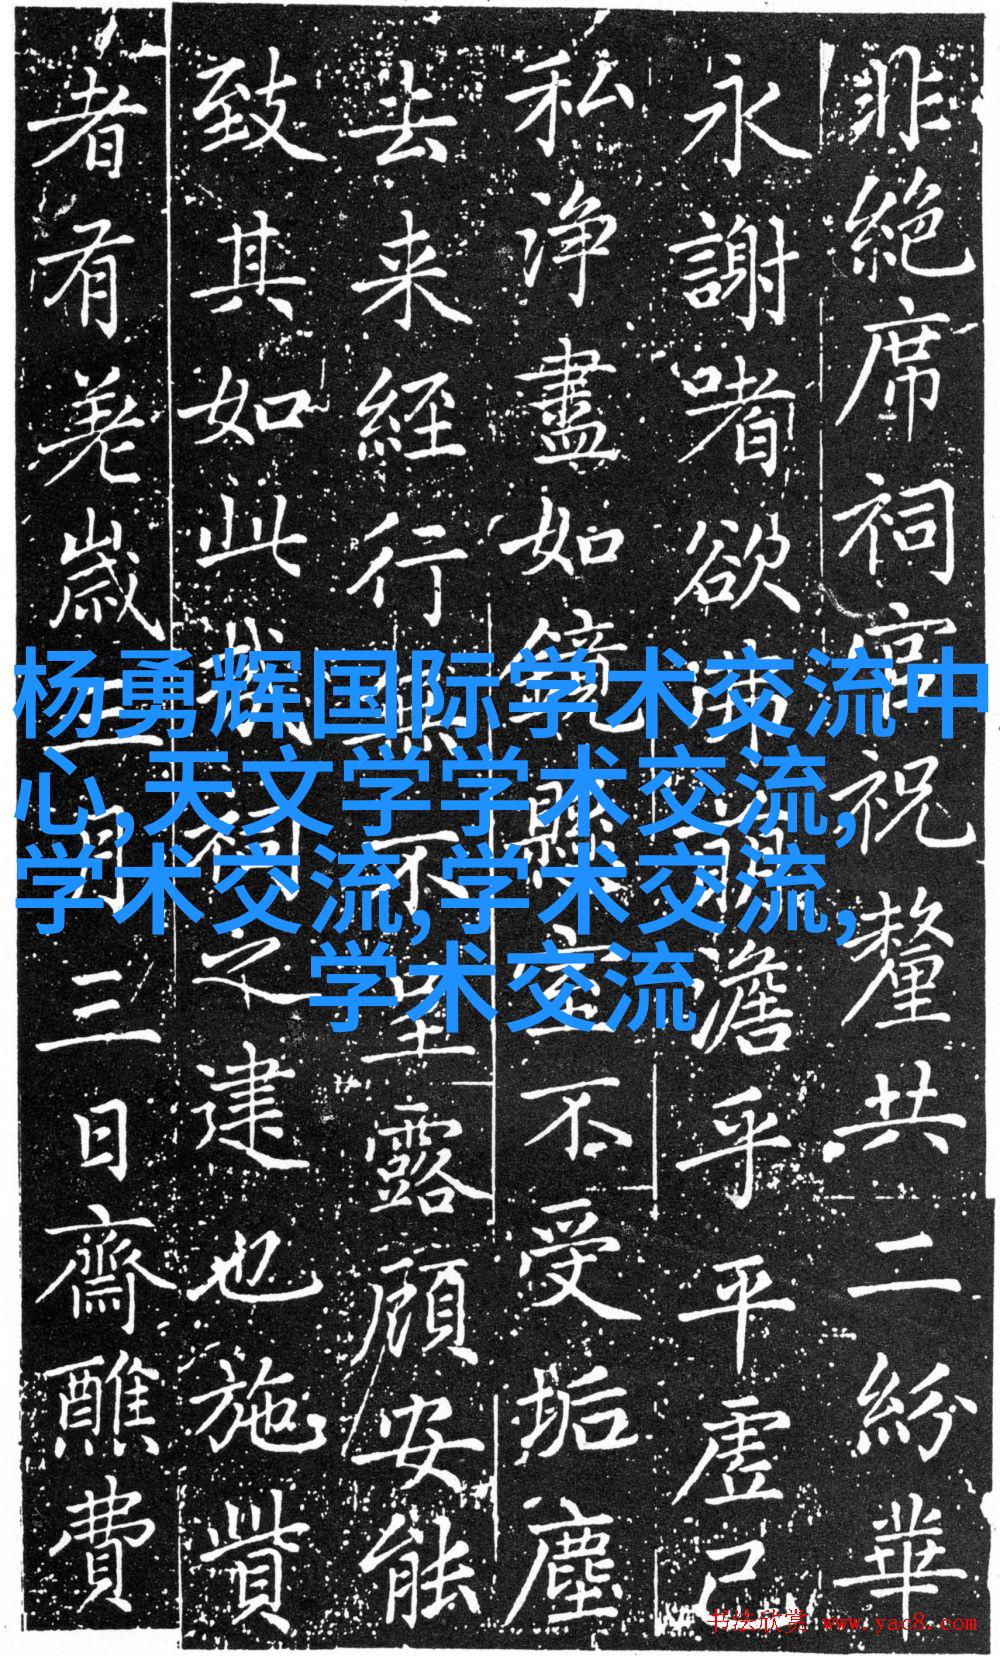 非絕席祠官祝釐共二紛華
永謝嗜欲澹乎平虛己
私淨盡如鏡懸空不受垢塵
去来經行無不呈露顧安能
致其如此哉祠之建也施貲
者有歲三月三日齋醮費
杨勇辉国际学术交流中
心,天文学学术交流,
学术交流,学术交流,
学术交流
书法欣赏 www.yac8.com